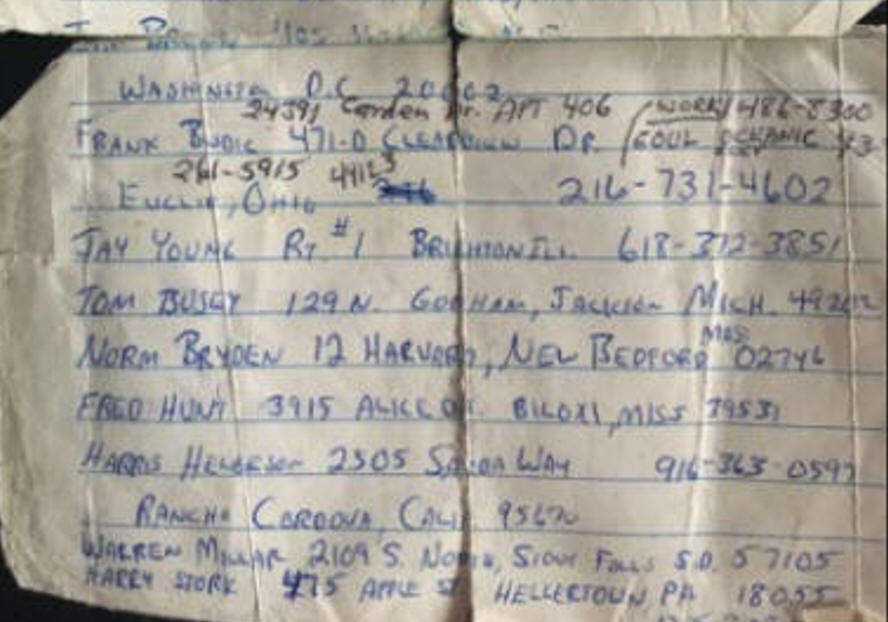 WASHINGTON D.C. 20002
24391 Garden Dr. APT 406 (WORK) 486-8300
FRANK BUDIC 471-D CLEARVIEW DR.
261-5915 44123
EUCLID, OHIO 216-731-4602
JAY YOUNG RT #1 BRIGHTON ILL. 618-372-3851
TOM BUSEY 129 N. GORHAM, JACKSON MICH. 49202
MASS
NORM BRYDEN 12 HARVARD, NEW BEDFORD 02746
FRED HUNT 3915 ALICE DR. BILOXI, MISS 39531
HARRIS 2505 WAY 916-363-0597
RANCHO CORDOVA, CALIF. 95670
WARREN MILLAR 2109 S. NORTON, SIOUX FALLS S.D. 57105
HARRY STORK 475 APPLE ST HELLERTOWN PA 18055